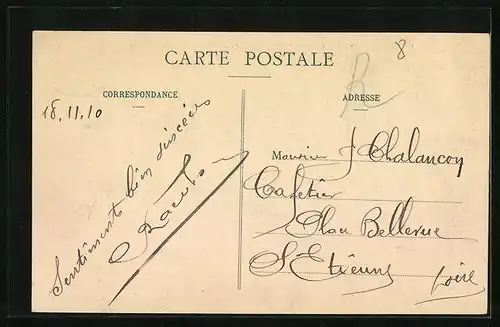 CARTE POSTALE
8
R
CORRESPONDANCE
ADRESSE
18.11.10
Sentiments bien sincères
Monsieur J Chalancon
Cafetier
Place Bellevue
St Etienne
Loire